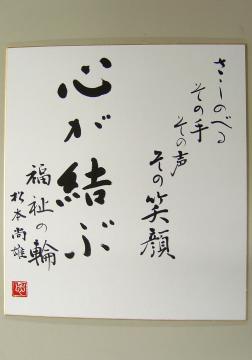 さしのべる
その手
その声
その笑顔
心が結ぶ
福祉の輪
松本尚雄